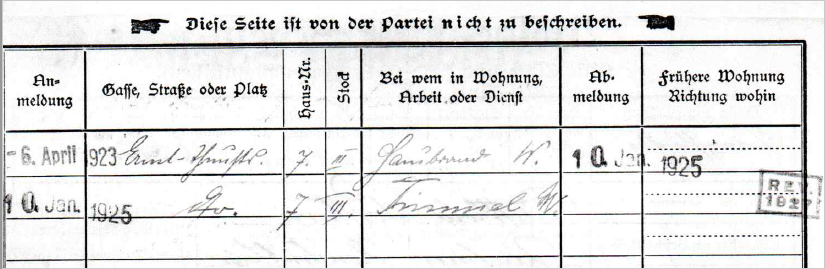 Diese Seite ist von der Partei nicht zu beschreiben.
An-
meldung
Gasse, Straße oder Platz
Haus-Nr.
Stock
Bei wem in Wohnung,
Arbeit oder Dienst
Ab-
meldung
Frühere Wohnung
Richtung wohin
- 6. April 923 7. III W. 10. Jan. 1925
10. Jan. 1925 Do. 7 III.
REV.